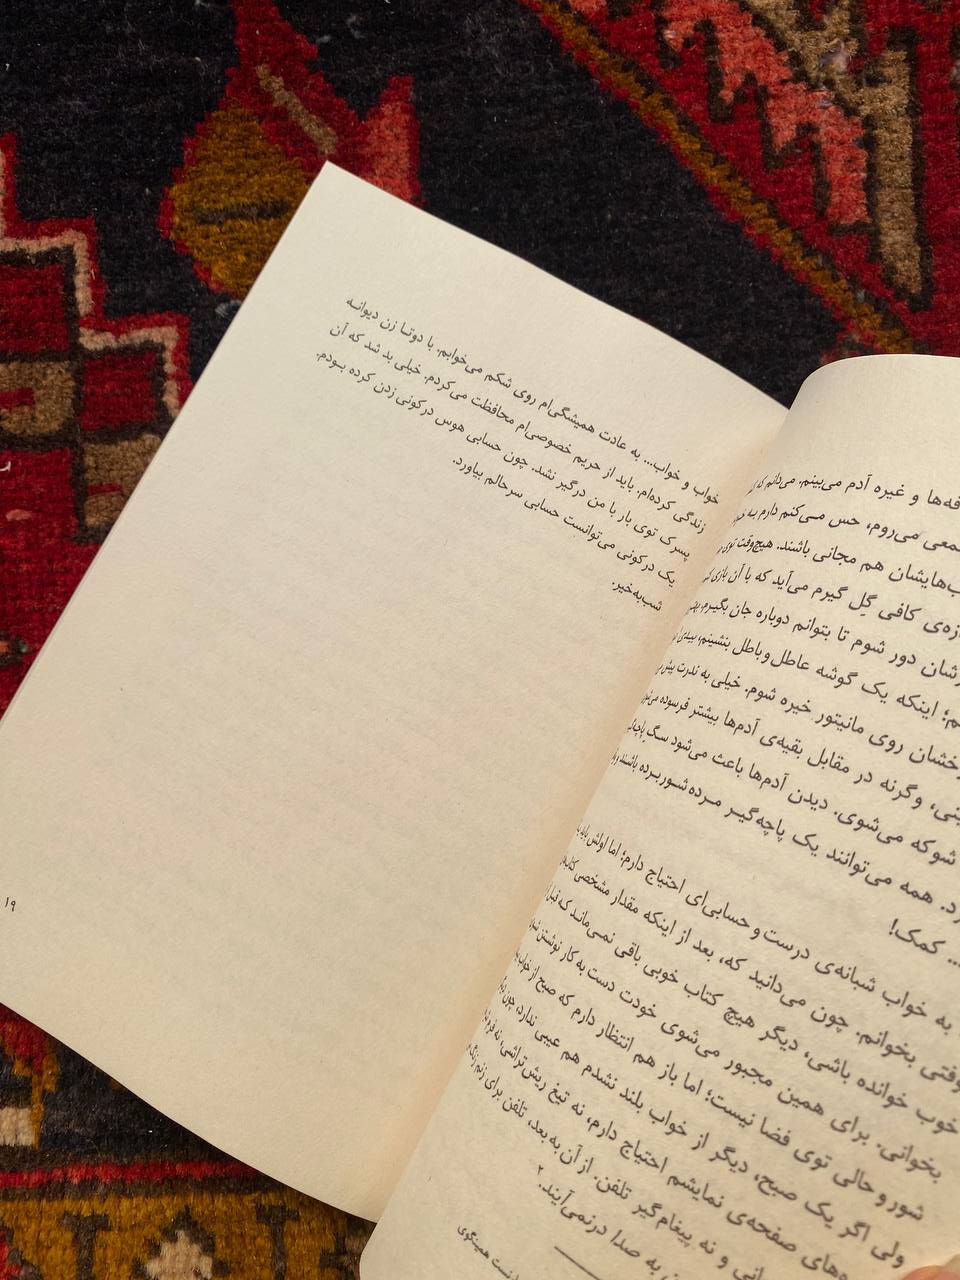 فه‌ها و غیره آدم می‌بینم. می‌دانم که
معی می‌روم، حس می‌کنم دارم به
ب‌هایشان هم مجانی باشند. هیچ‌وقت توی
زه‌ی کافی گِل گیرم می‌آید که با آن بازی
شان دور شوم تا بتوانم دوباره جان بگیرم.
م؛ اینکه یک گوشه عاطل و باطل بنشینم،
خشان روی مانیتور خیره شوم. خیلی به ندرت پیش
ینی، وگرنه در مقابل بقیه‌ی آدم‌ها بیشتر فرسوده
شوکه می‌شوی. دیدن آدم‌ها باعث می‌شود سگ پاچه‌گیر
د. همه می‌توانند یک پاچه‌گیر مرده‌شوربرده باشند
... کمک!
به خواب شبانه‌ی درست و حسابی‌ای احتیاج دارم؛ اما اولش باید
وقتی بخوانم. چون می‌دانید که، بعد از اینکه مقدار مشخصی کتاب‌های
خوب خوانده باشی، دیگر هیچ کتاب خوبی باقی نمی‌ماند که قبلاً
بخوانی. برای همین مجبور می‌شوی خودت دست به کار نوشتن
شور و حالی توی فضا نیست؛ اما باز هم انتظار دارم که صبح از خواب
ولی اگر یک صبح، دیگر از خواب بلند نشدم هم عیبی ندارد، چون
ه‌های صفحه‌ی نمایشم احتیاج دارم، نه تیغ ریش‌تراشی، نه
انی و نه پیغام‌گیر تلفن. از آن به بعد، تلفن برای زنم زنگ
به صدا درنمی‌آیند.۲
همینگوی
خواب و خواب... به عادت همیشگی‌ام روی شکم می‌خوابم. با دوتا زن دیوانه
زندگی کرده‌ام. باید از حریم خصوصی‌ام محافظت می‌کردم. خیلی بد شد که آن
پسرک توی بار با من درگیر نشد. چون حسابی هوس درکونی زدن کرده بودم.
یک درکونی می‌توانست حسابی سرحالم بیاورد.
شب‌به‌خیر.
۱۹